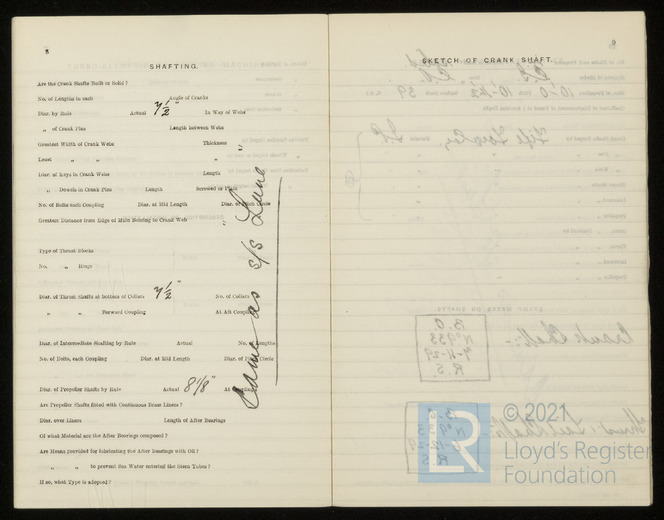 8
SHAFTING.
Are the Crank Shafts Built or Solid?
No. of Lengths in each Angle of Cranks
Diar. by Rule Actual 7 1/2" In Way of Webs
„ of Crank Pins Length between Webs
Greatest Width of Crank Webs Thickness „
Least „ „ „
Diar. of Keys in Crank Webs Length
„ Dowels in Crank Pins Length Screwed or Plain
No. of Bolts each Coupling Diar. at Mid Length Diar. of Pitch Circle
Greatest Distance from Edge of Main Bearing to Crank Web „
Type of Thrust Blocks
No. „ Rings
Diar. of Thrust Shafts at bottom of Collars 7 1/2" No. of Collars
„ „ Forward Coupling At Aft Coupling
Diar. of Intermediate Shafting by Rule Actual No. of Lengths
No. of Bolts, each Coupling Diar. at Mid Length Diar. of Pitch Circle
Diar. of Propeller Shafts by Rule Actual 8 1/8" At Couplings
Are Propeller Shafts fitted with Continuous Brass Liners?
Diar. over Liners Length of After Bearings
Of what Material are the After Bearings composed?
Are Means provided for lubricating the After Bearings with Oil?
„ „ to prevent Sea Water entering the Stern Tubes?
If so, what Type is adopted?
Same as s/s Lune
9
SKETCH OF CRANK SHAFT.
LR
© 2021
Lloyd's Register
Foundation